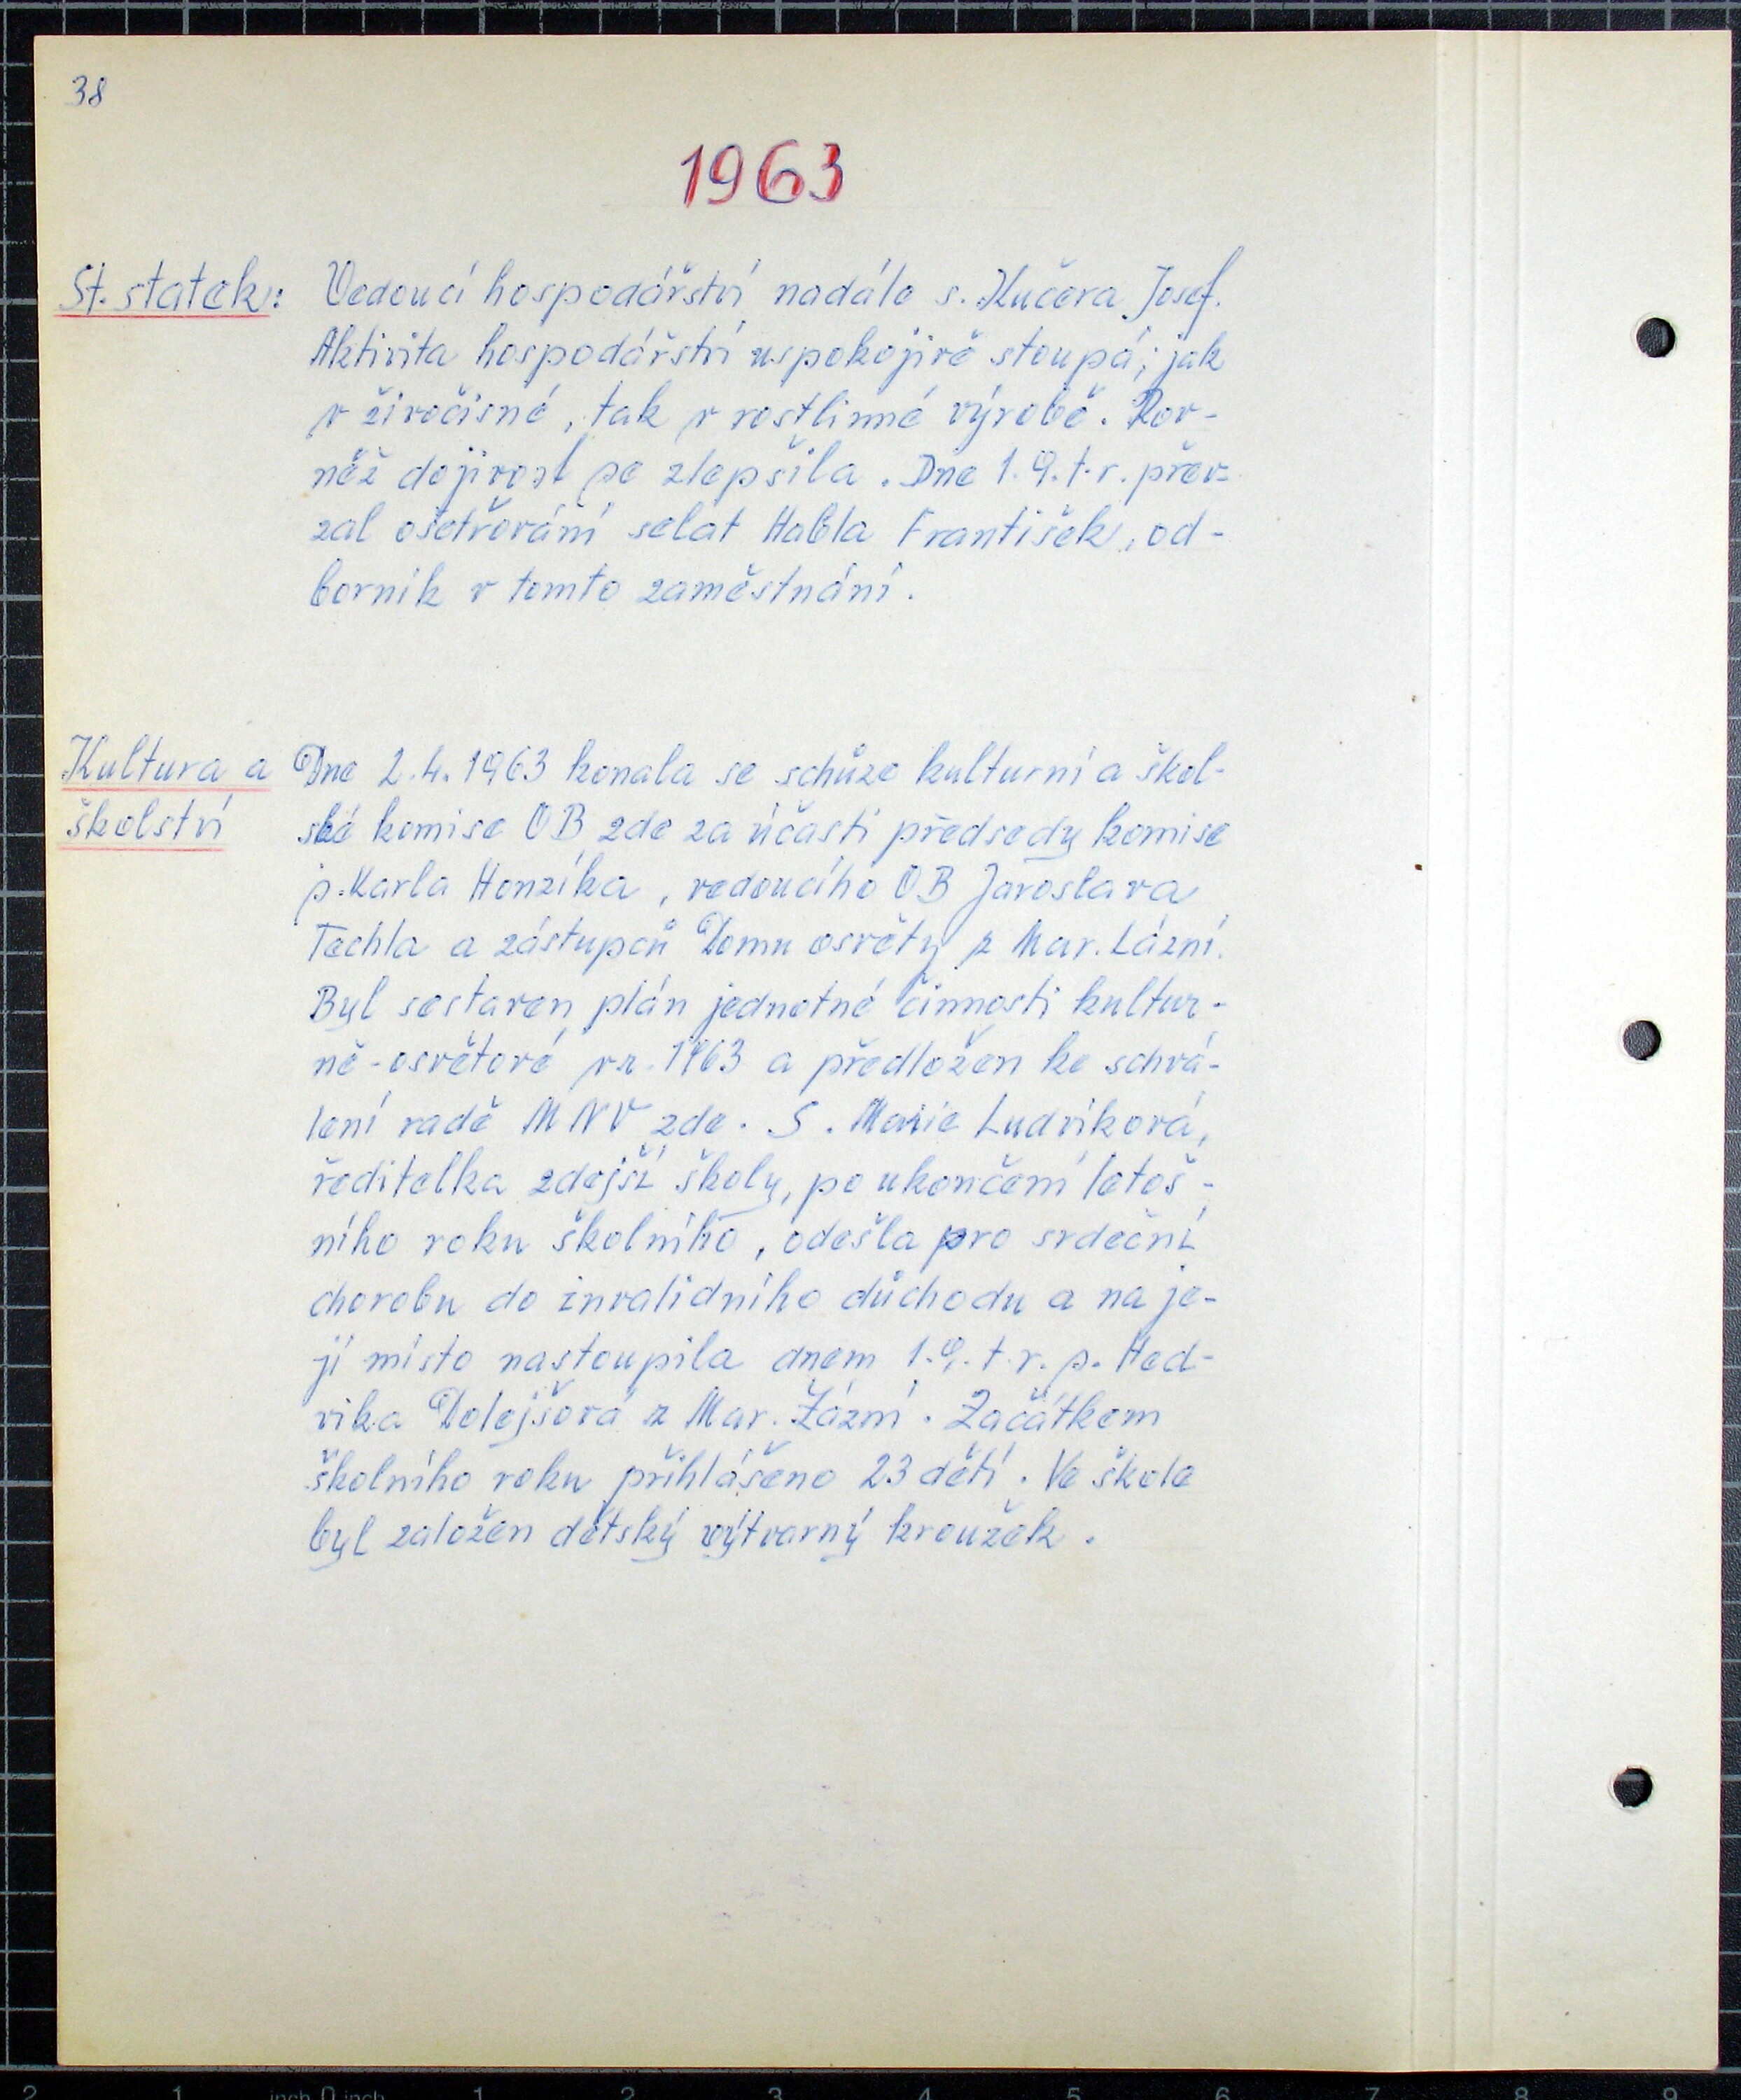 38
1963
St. statek: Vedoucí hospodářství nadále s. Kučera Josef.
Aktivita hospodářství uspokojivě stoupá; jak
v živočisné, tak v rostlinné výrobě. Rov-
něž dojivost se zlepšila. Dne 1.9.t.r. přev-
zal ošetřování selat Habla František, od-
borník v tomto zaměstnání.
Kultura a Dne 2.4.1963 konala se schůze kulturní a škol-
školství ské komise OB zde za účasti předsedy komise
s. Karla Honzíka, vedoucího OB Jaroslava
Techla a zástupců Domu osvěty z Mar. Lázní.
Byl sestaven plán jednotné činnosti kultur-
ně-osvětové v r. 1963 a předložen ke schvá-
lení radě MNV zde. S. Marie Ludvíková,
ředitelka zdejší školy, po ukončení letoš-
ního roku školního, odešla pro srdeční
chorobu do invalidního důchodu a na je-
jí místo nastoupila dnem 1.9.t.r. s. Hed-
vika Dolejšová z Mar. Lázní. Začátkem
školního roku přihlášeno 23 dětí. Ve škole
byl založen dětský výtvarný kroužek.
2 1 inch 0 inch 1 2 3 4 5 6 7 8 9